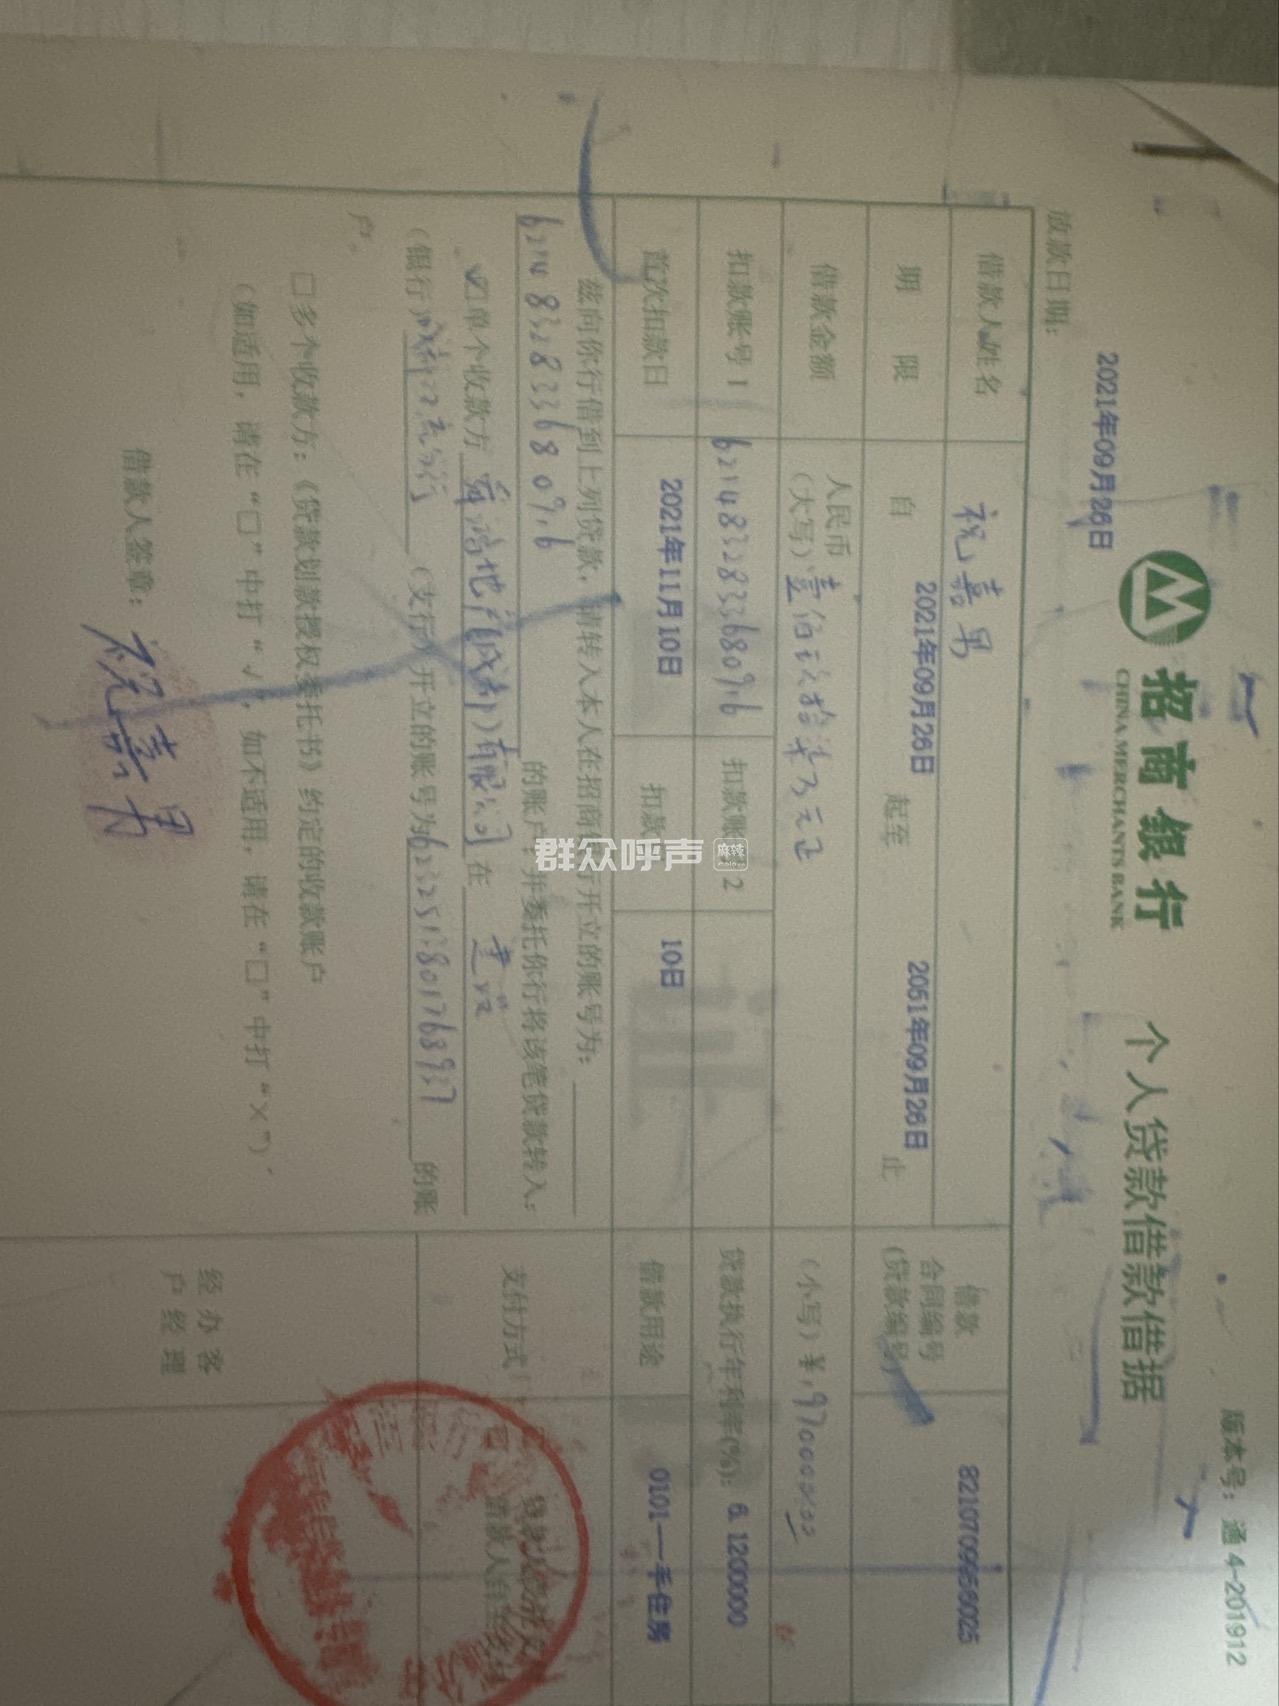 版本号：通 4-201912
招商银行 个人贷款借款借据
CHINA MERCHANTS BANK
2021年09月26日
放款日期：
借款人姓名 祝嘉男 借款合同编号(贷款编号) 8210709956025
期限 自 2021年09月26日 起至 2051年09月26日 止
借款金额 人民币(大写) 壹佰玖拾柒万元正 (小写)¥1970000.00
扣款账号1 6214832833680916 扣款账号2 贷款执行年利率(%)： 6.1200000
首次扣款日 2021年11月10日 扣款 10日 借款用途 0101一手住房
兹向你行借到上列贷款，请转入本人在招商银行开立的账号为：
6214832833680916 的账户；并委托你行将该笔贷款转入： 支付方式
☑单个收款方 地产(成都)有限公司 在 建设
(银行) 支行 (支行)开立的账号为 的账
户。
□多个收款方：《贷款划款授权委托书》约定的收款账户
(如适用，请在“□”中打“√”，如不适用，请在“□”中打“×”)
经办客户经理
借款人签章： 祝嘉男
群众呼声 麻辣